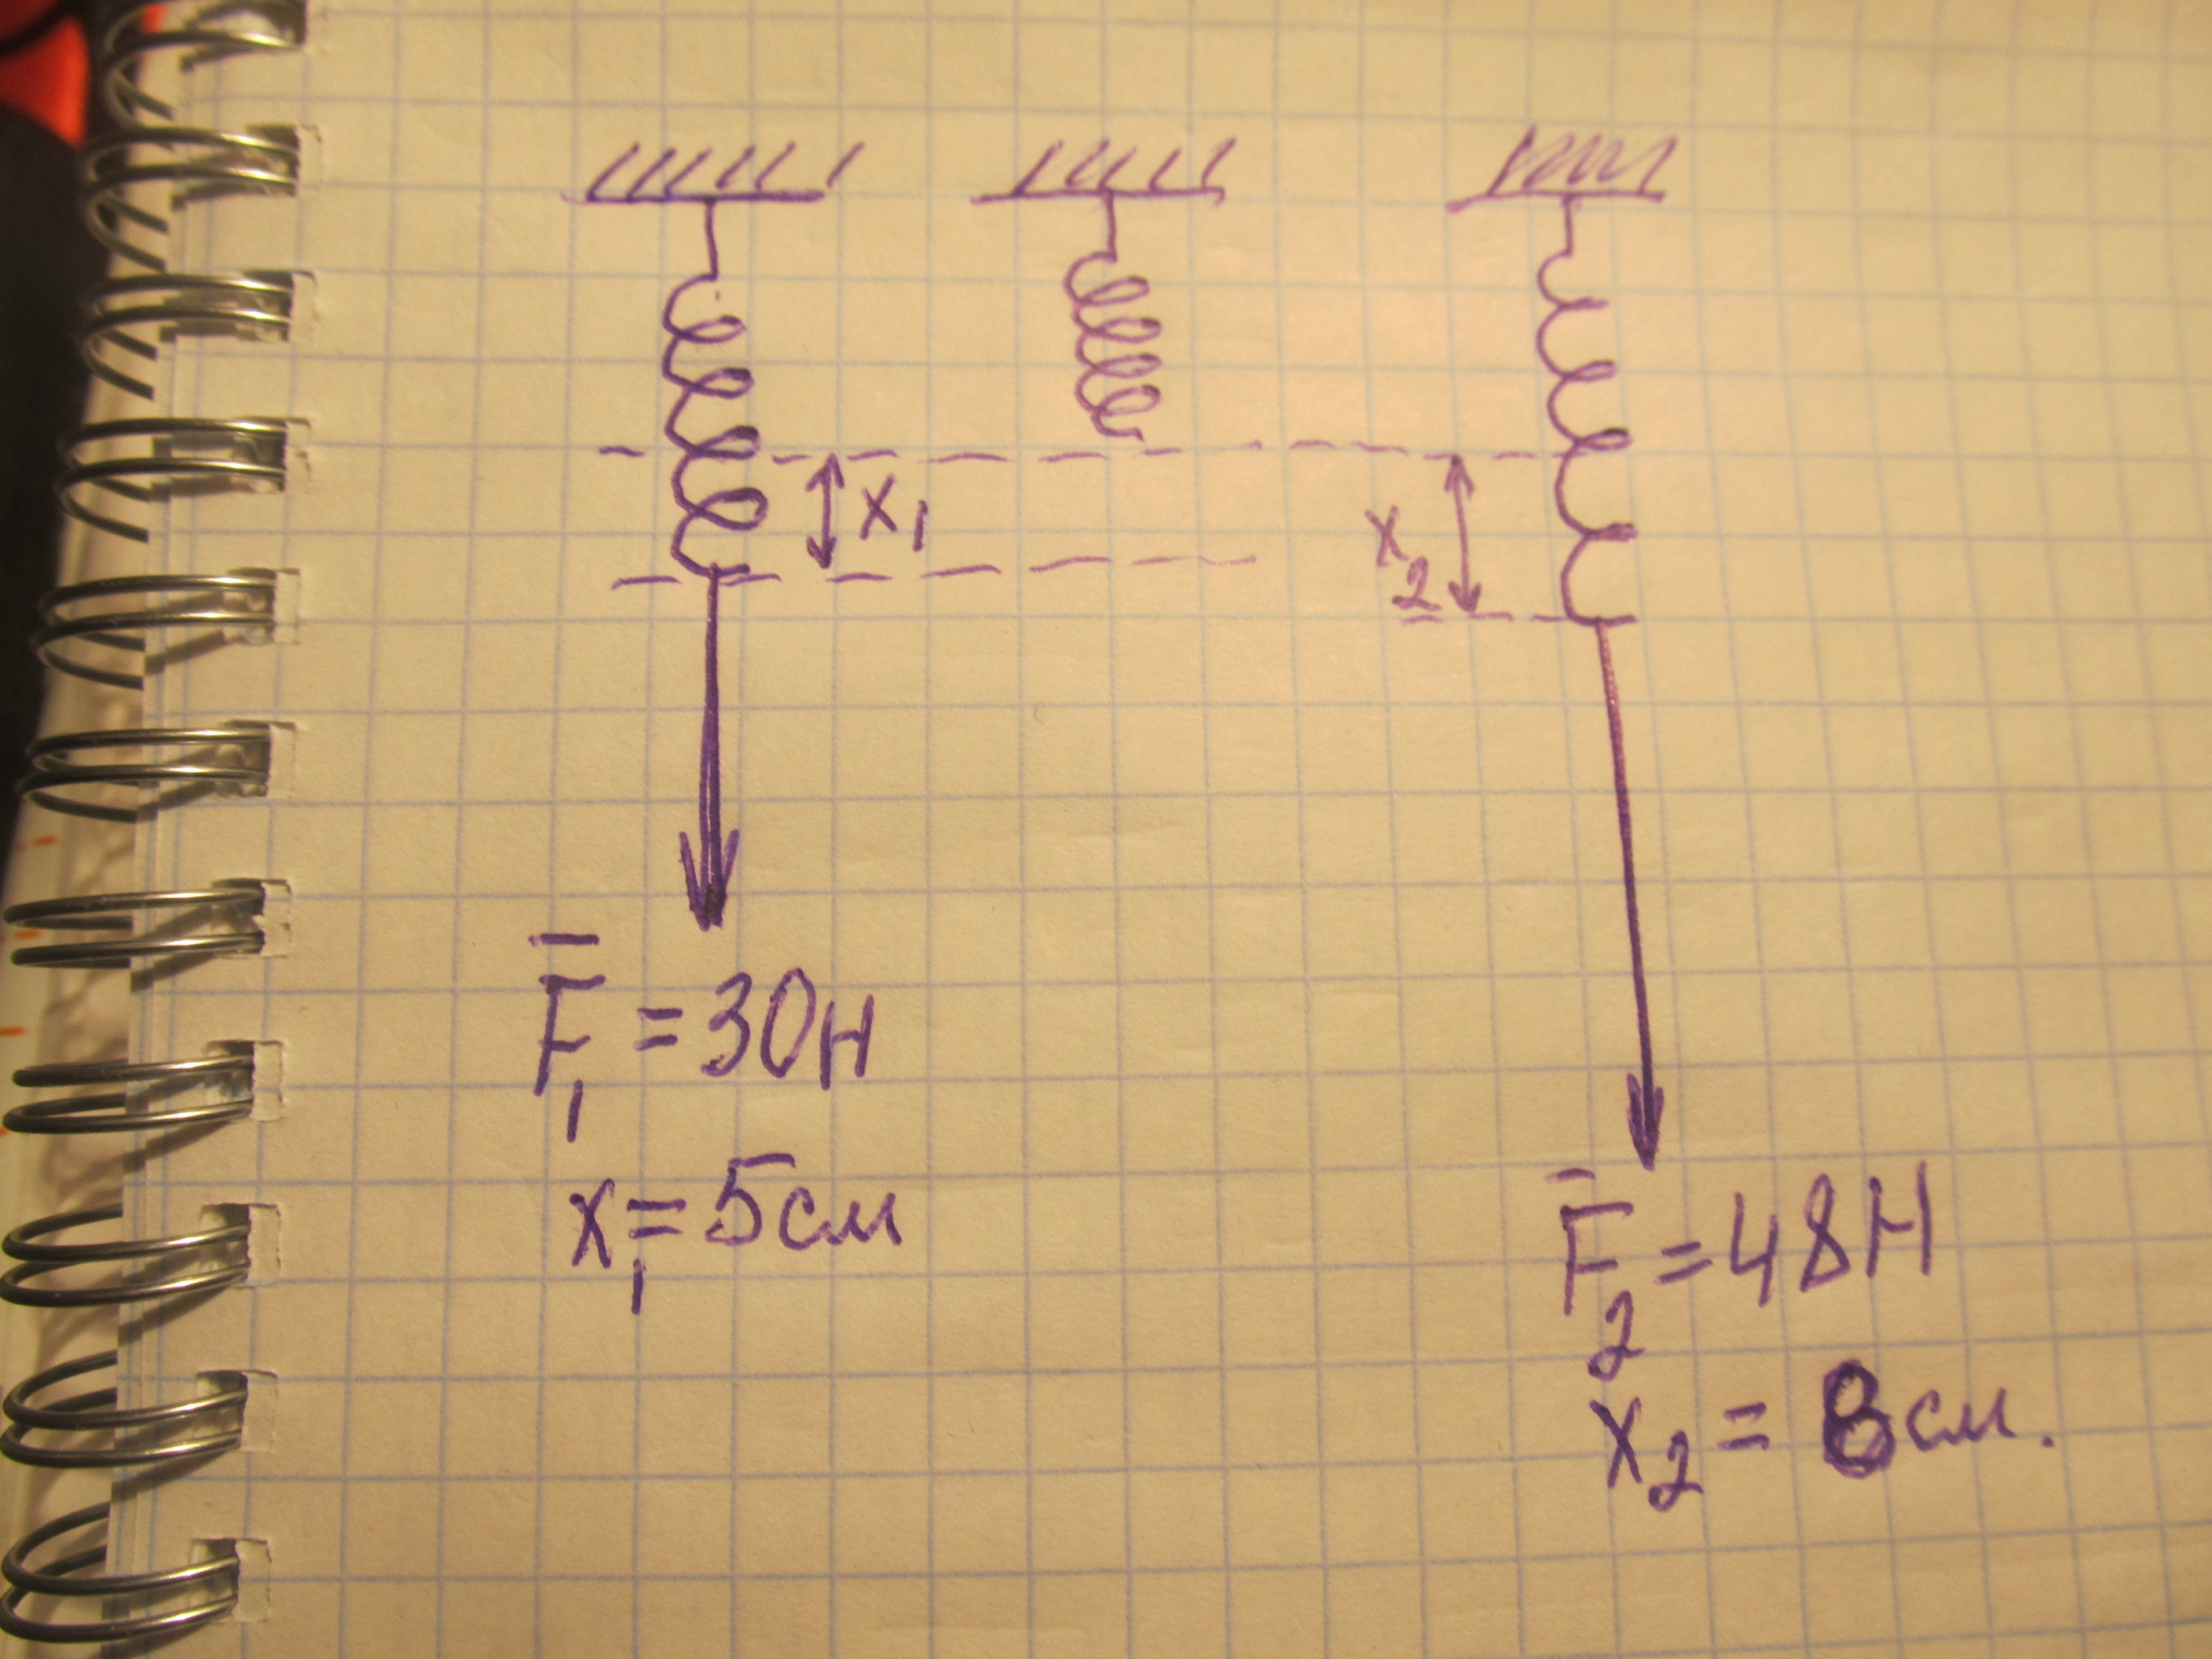 x₁
x₂
F̄₁ = 30н
x₁ = 5см
F̄₂ = 48Н
x₂ = 8см.